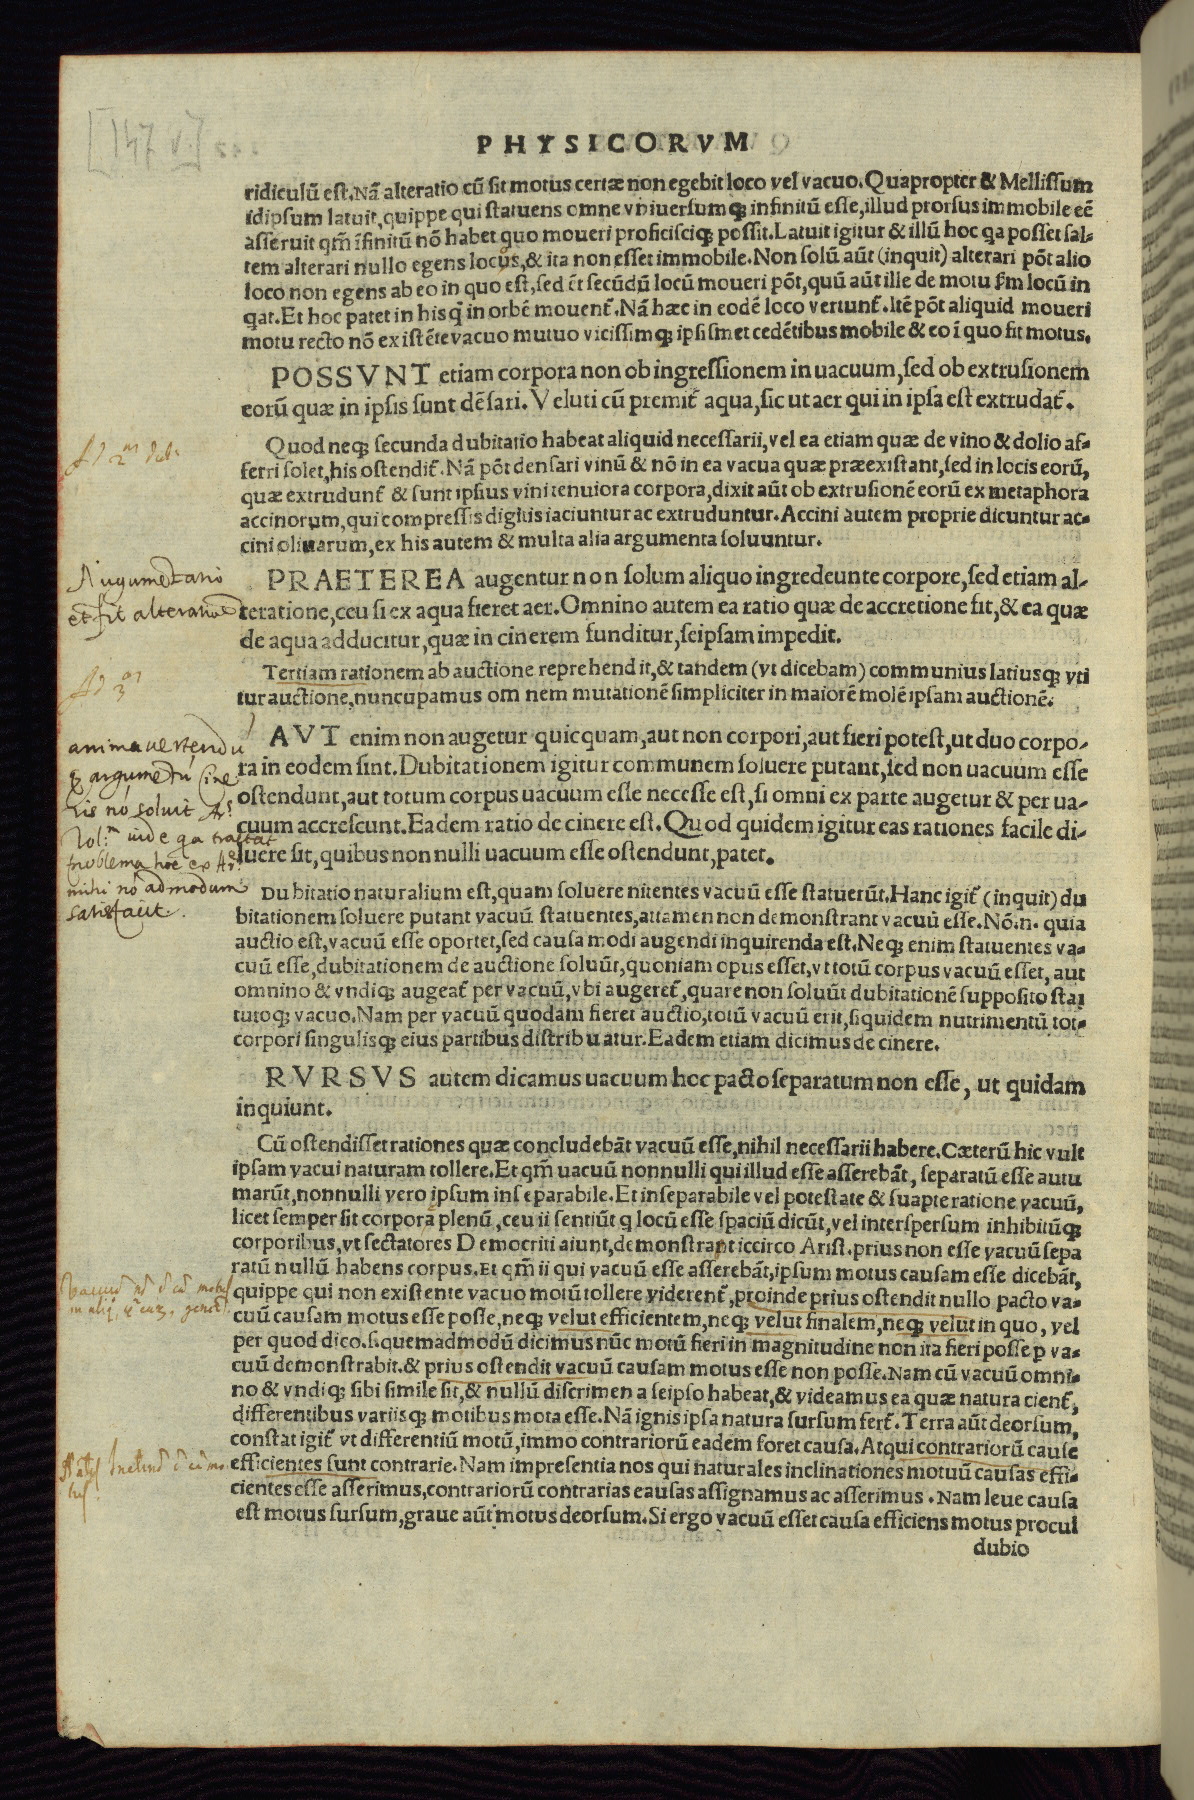 [147 v]
PHYSICORVM
ridiculū est. Nā alteratio cū sit motus certæ non egebit loco vel vacuo. Quapropter & Mellissum
idipsum latuit, quippe qui statuens omne vniuersumq; infinitū esse, illud prorsus immobile eē
asseruit qm̄ īfinitū nō habet quo moueri proficisciq; possit. Latuit igitur & illū hoc qa posset sal-
tem alterari nullo egens locus, & ita non esset immobile. Non solū aūt (inquit) alterari pōt alio
loco non egens ab eo in quo est, sed ēt secūdū locū moueri pōt, quū aūt ille de motu s̄m locū in
qat. Et hoc patet in his q̄ in orbē mouent̄. Nā hæc in eodē loco vertunt̄. Itē pōt aliquid moueri
motu recto nō existēte vacuo mutuo vicissimq; ipsismet cedētibus mobile & eo ī quo fit motus.
POSSVNT etiam corpora non ob ingressionem in uacuum, sed ob extrusionem
eorū quæ in ipsis sunt dēsari. Veluti cū premit̄ aqua, sic ut aer qui in ipsa est extrudat̄.
Ad 2m dub.
Quod neq; secunda dubitatio habeat aliquid necessarii, vel ea etiam quæ de vino & dolio af-
ferri solet, his ostendit̄. Nā pōt densari vinū & nō in ea vacua quæ præexistant, sed in locis eorū,
quæ extrudunt̄ & sunt ipsius vini tenuiora corpora, dixit aūt ob extrusionē eorū ex metaphora
accinorum, qui compressis digitis iaciuntur ac extruduntur. Accini autem proprie dicuntur ac-
cini oliuarum, ex his autem & multa alia argumenta soluuntur.
Augumētatio
et fit alteratiōe
PRAETEREA augentur non solum aliquo ingredeunte corpore, sed etiam al-
teratione, ceu si ex aqua fieret aer. Omnino autem ea ratio quæ de accretione fit, & ea quæ
de aqua adducitur, quæ in cinerem funditur, seipsam impedit.
Ad 3m
Tertiam rationem ab auctione reprehendit, & tandem (vt dicebam) communius latiusq; vti
tur auctione, nuncupamus omnem mutationē simpliciter in maiorē molē ipsam auctionē.
animauertendū
q argumētū Cine
ris nō soluit Ar.
mihi nō admodum
satisfaciit.
AVT enim non augetur quicquam, aut non corpori, aut fieri potest, ut duo corpo-
ra in eodem sint. Dubitationem igitur communem soluere putant, sed non uacuum esse
ostendunt, aut totum corpus uacuum esse necesse est, si omni ex parte augetur & per ua-
cuum accrescunt. Eadem ratio de cinere est. Quod quidem igitur eas rationes facile di-
luere sit, quibus non nulli uacuum esse ostendunt, patet.
Dubitatio naturalium est, quam soluere nitentes vacuū esse statuerūt. Hanc igit̄ (inquit) du
bitationem soluere putant vacuū statuentes, attamen non demonstrant vacuū esse. Nō.n. quia
auctio est, vacuū esse oportet, sed causa modi augendi inquirenda est. Neq; enim statuentes va-
cuū esse, dubitationem de auctione soluūt, quoniam opus esset, vt totū corpus vacuū esset, aut
omnino & vndiq; augeat̄ per vacuū, vbi augeret̄, quare non soluūt dubitationē supposito stai
tutoq; vacuo. Nam per vacuū quodam fieret auctio, totū vacuū erit, siquidem nutrimentū tot-
corpori singulisq; eius partibus distribuatur. Eadem etiam dicimus de cinere.
RVRSVS autem dicamus uacuum hoc pacto separatum non esse, ut quidam
inquiunt.
Cū ostendisset rationes quæ concludebāt vacuū esse, nihil necessarii habere. Cæterū hic vult
ipsam vacui naturam tollere. Et qm̄ uacuū nonnulli qui illud esse asserebāt, separatū esse autu
marūt, nonnulli vero ipsum inseparabile. Et inseparabile vel potestate & suapte ratione vacuū,
licet semper sit corpora plenū, ceu ii sentiūt q locū esse spaciū dicūt, vel interspersum inhibitūq;
corporibus, vt sectatores Democriti aiunt, demonstrant iccirco Arist. prius non esse vacuū sepa
ratū nullū habens corpus. Et qm̄ ii qui vacuū esse asserebāt, ipsum motus causam esse dicebāt,
quippe qui non existente vacuo motū tollere viderent̄, proinde prius ostendit nullo pacto va-
cuū causam motus esse posse, neq; velut efficientem, neq; velut finalem, neq; velut in quo, vel
per quod dico. s. quemadmodū dicimus nūc motū fieri in magnitudine non ita fieri posse p va-
cuū demonstrabit. & prius ostendit vacuū causam motus esse non posse. Nam cū vacuū omni-
no & vndiq; sibi simile sit, & nullū discrimen a seipso habeat, & videamus ea quæ natura cient̄,
differentibus variisq; motibus mota esse. Nā ignis ipsa natura sursum fert̄. Terra aūt deorsum,
constat igit̄ vt differentiū motū, immo contrariorū eadem foret causa. Atqui contrariorū cause
efficientes sunt contrarie. Nam impresentia nos qui naturales inclinationes motuū causas effi-
cientes esse asserimus, contrariorū contrarias eausas assignamus ac asserimus. Nam leue causa
est motus sursum, graue aūt motus deorsum. Si ergo vacuū esset causa efficiens motus procul
dubio